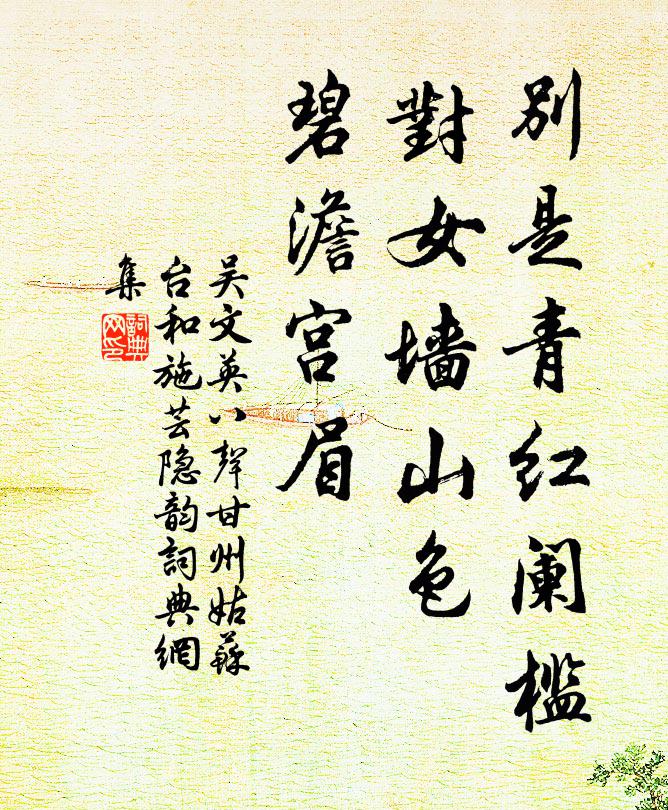 别是青红阑槛
對女墙山色
碧澹宫眉
吴文英八聲甘州姑蘇
台和施芸隐韵詞典網
集
詞典
网印